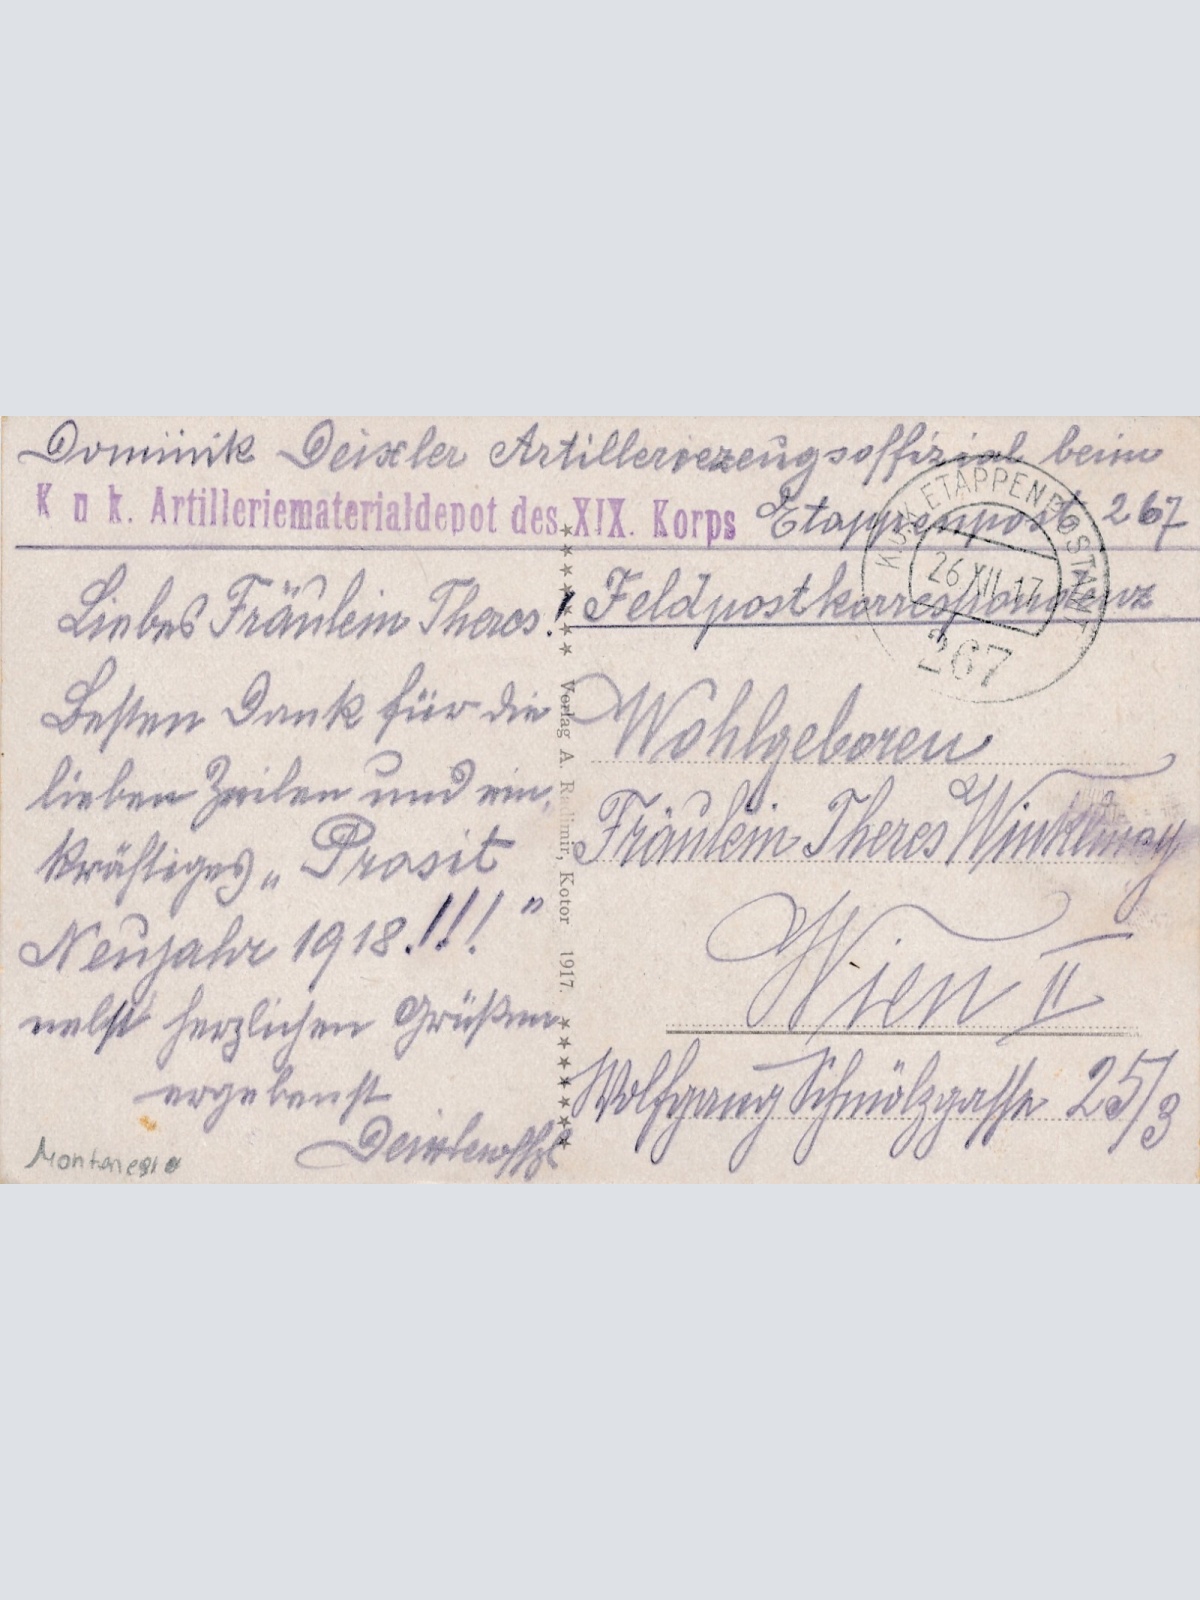 Dominik Deixler Artilleriezeugsoffizial beim
K u k. Artilleriematerialdepot des XIX. Korps
Etappenpost 267
K.u.K. ETAPPENPOSTAMT
26 XII 17
267
Feldpostkorrespondenz
Liebes Fräulein Theres!
Besten Dank für die
lieben Zeilen und ein
kräftiges „Prosit
Neujahr 1918!!!"
nebst herzlichen Grüßen
ergebenst
Montenegro
Verlag A. Radimir, Kotor 1917.
Wohlgeboren
Fräulein Theres Winklmay
Wien II
Wolfgang Schmälzgasse 25/3